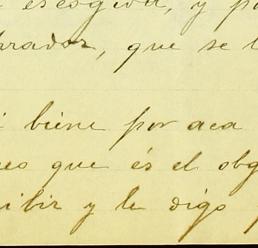 escogida, y po
brados, que se l
i biene por aca
eo que és el obg
ibir y le digo